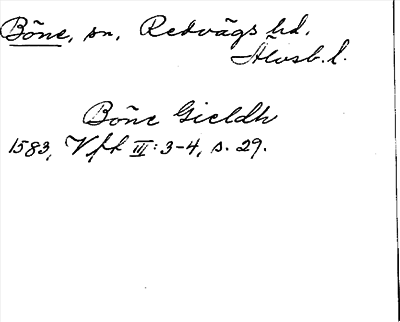 Böne, sn, Redvägs hd.
Älvsb. l.
Böne Gieldh
1583, Vft III: 3-4, s. 29.